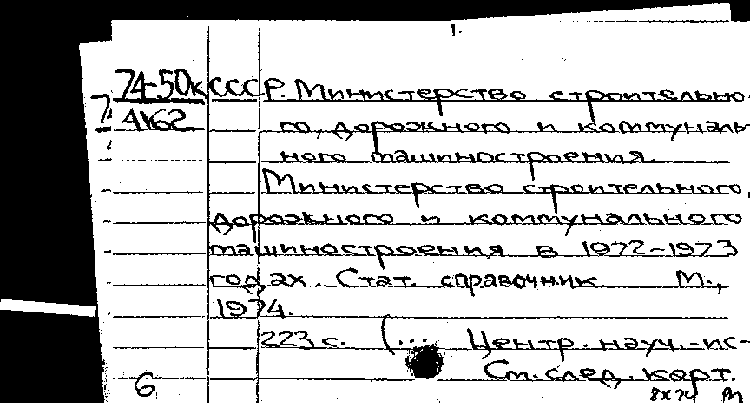 74-50к СССР. Министерство строительно-
4162 го, дорожного и коммуналь-
ного машиностроения.
Министерство строительного,
дорожного и коммунального
машиностроения в 1972-1973
годах. Стат. справочник М.,
1974.
223 с. (... Центр. науч.-ис-
См. след. карт.
6